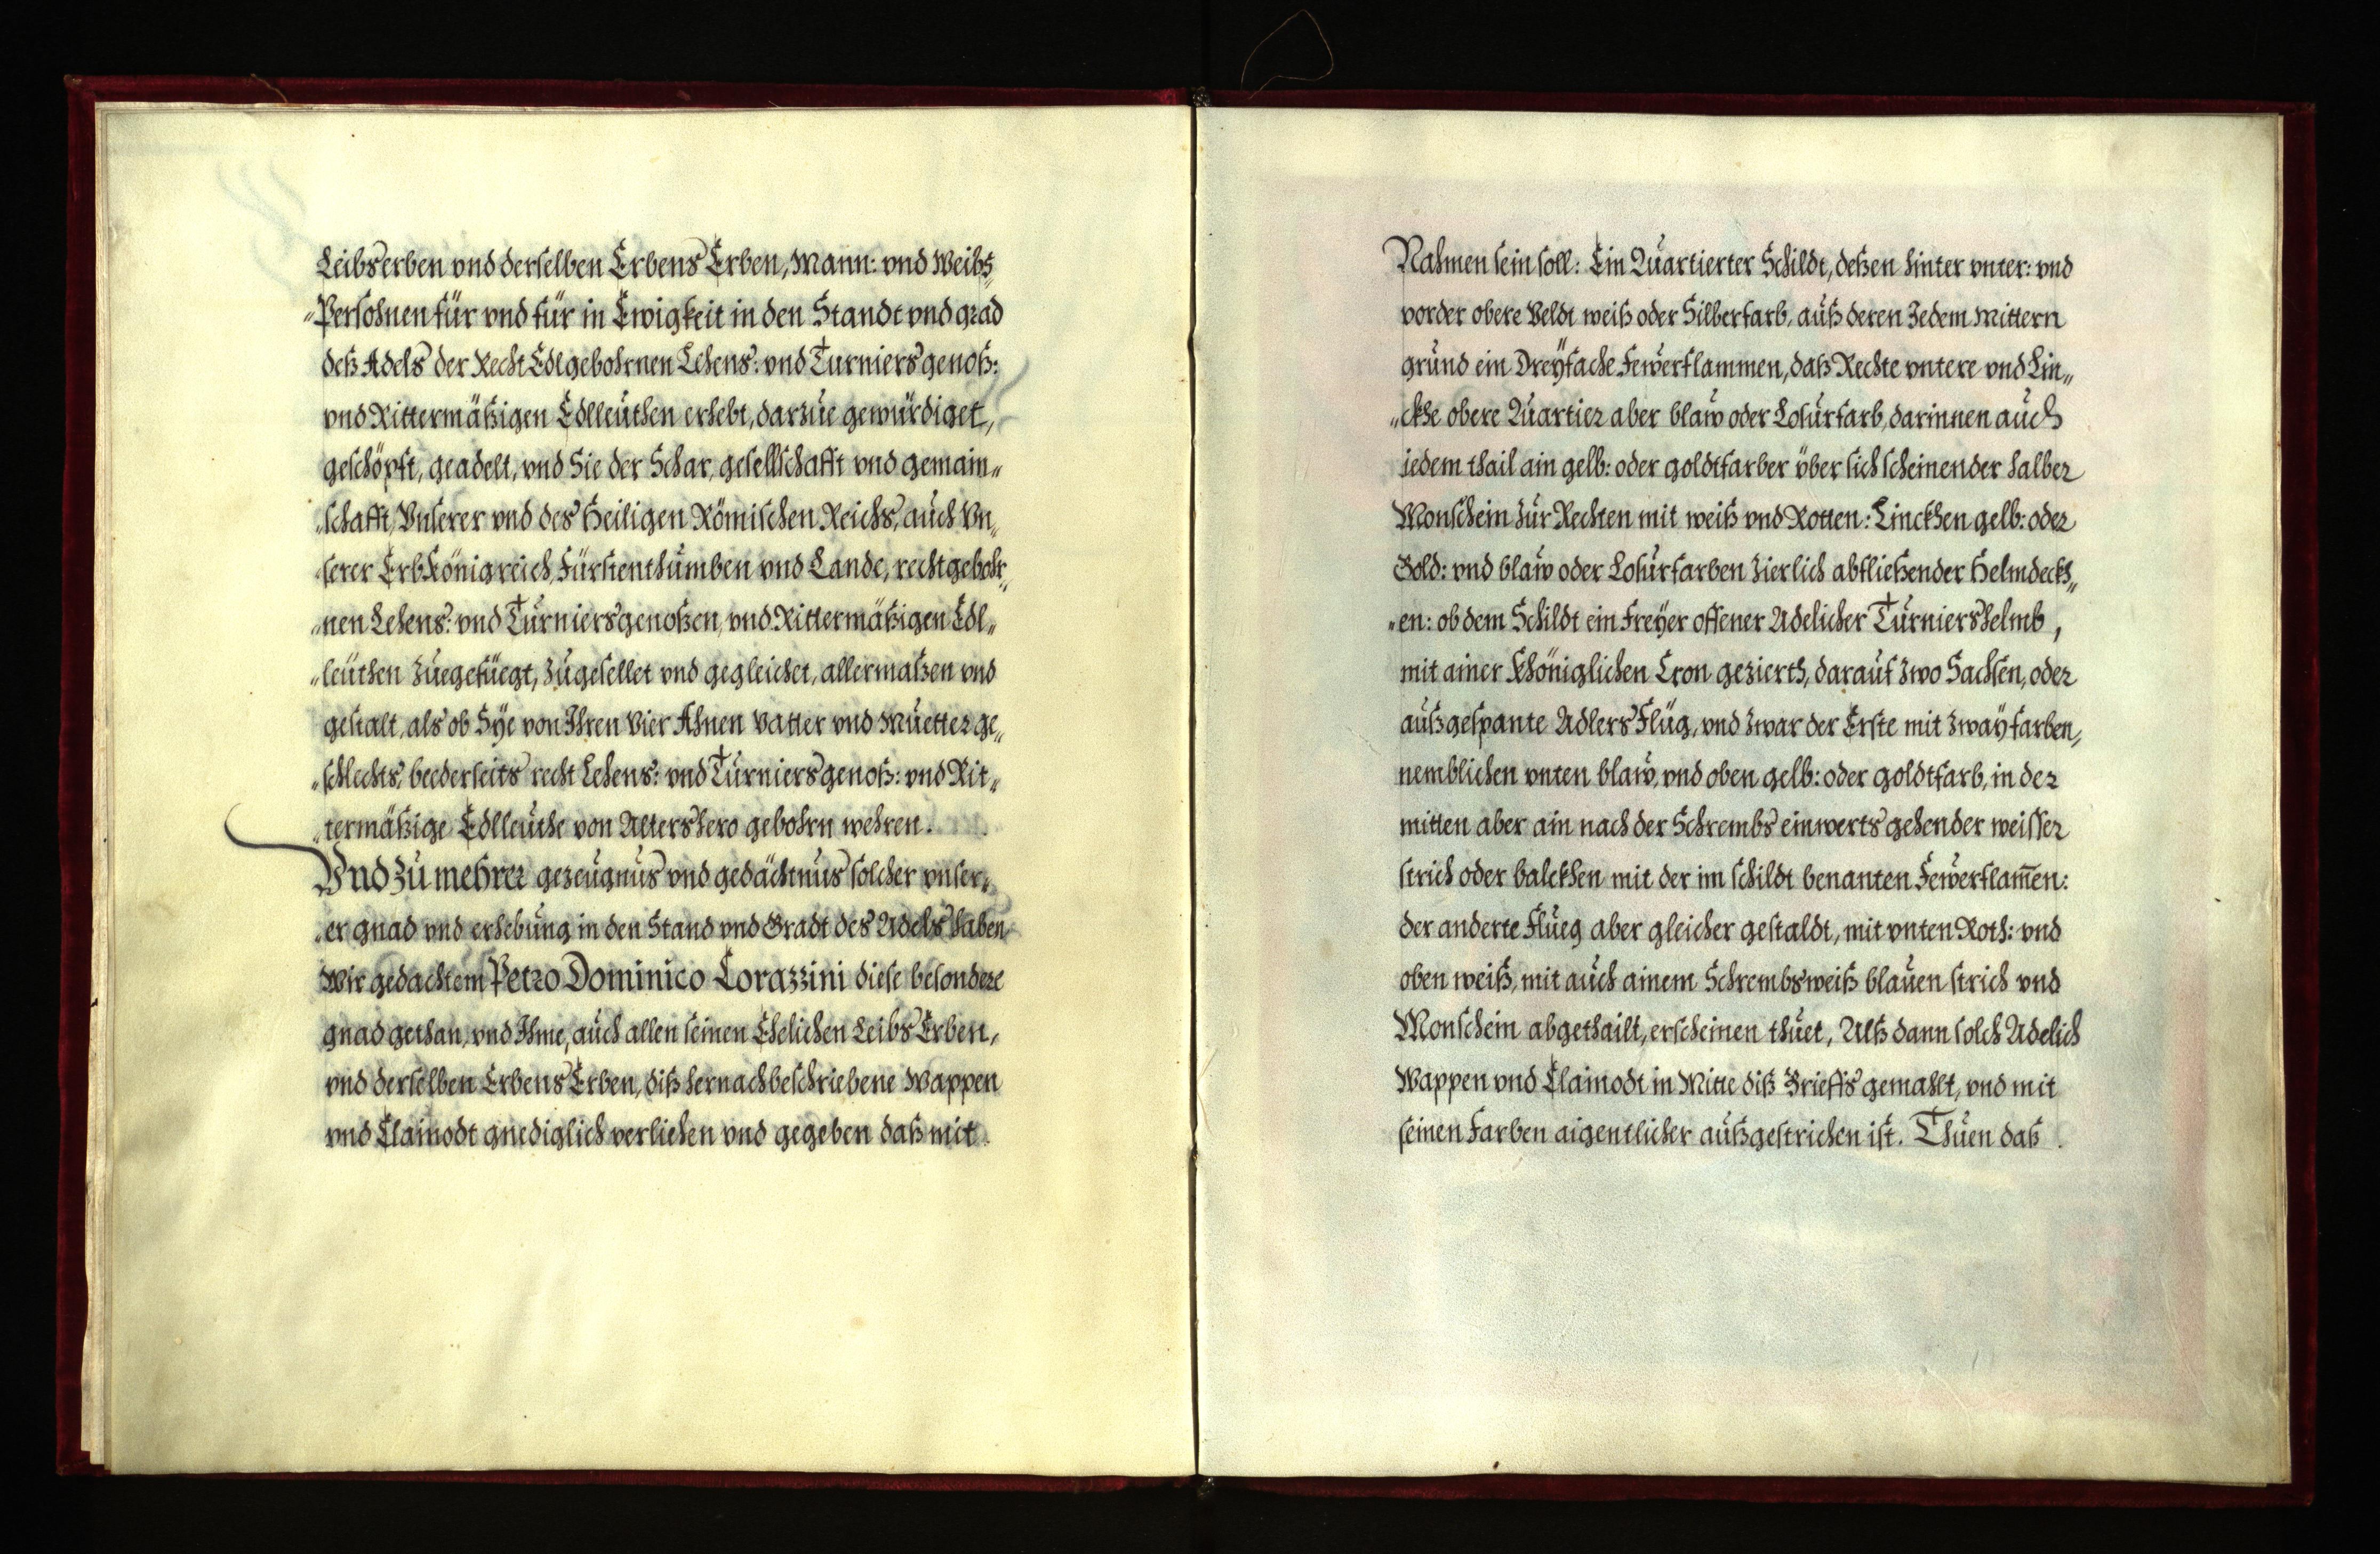 Leibserben vnd derselben Erbens Erben, Mann: vnd Weibs„
„Persohnen für vnd für in Ewigkeit in den Standt vnd grad
deß Adels der Recht Edlgebohrnen Lehens: vnd Turniersgenoß:
vnd Rittermäßigen Edlleüthen erhebt, darzue gewürdiget,
geschöpft, geadelt, vnd Sie der Schar, gesellschafft vnd gemain„
„schafft, Vnserer vnd des Heiligen Römischen Reichs, auch Vn„
„serer ErbKönigreich, Fürstenthumben vnd Lande, rechtgebohr„
„nen Lehens: vnd Turniersgenoßen, vnd Rittermäßigen Edl„
„leüthen zuegefüegt, zugesellet vnd gegleichet, allermaßen vnd
gestalt, als ob Sÿe von Ihren Vier Ahnen Vatter vnd Muetter ge„
„schlechts, beederseits recht Lehens: vnd Turniersgenoß: vnd Rit„
„termäßige Edlleüthe von Altershero gebohrn wehren.
Vnd zu mehrer gezeugnus vnd gedächtnus solcher vnser„
„er gnad vnd erhebung in den Stand vnd Gradt des Adels haben
Wir gedachtem Petro Dominico Corazzini diese besondere
gnad gethan, vnd Ihme, auch allen seinen Ehelichen Leibs Erben,
vnd derselben Erbens Erben, diß hernachbeschriebene Wappen
vnd Clainodt gnediglich verliehen vnd gegeben daß mit
Nahmen sein soll: Ein Quartierter Schildt, deßen hinter vnter: vnd
vorder obere Veldt weiß oder Silberfarb, auß deren Jedem Mittern
grund ein Dreÿfache Fewerflammen, daß Rechte vntere vnd Lin„
„ckhe obere Quartier aber blaw oder Losurfarb, darinnen auch
jedem thail ain gelb: oder goldtfarber vber sich scheinender halber
Monschein zur Rechten mit weiß vnd Rotten: Linckhen gelb: oder
Gold: vnd blaw oder Losurfarben zierlich abfließender Helmdeckh„
„en: ob dem Schildt ein Freÿer offener Adelicher Turniershelmb,
mit ainer Khöniglichen Cron gezierth, darauf zwo Sachsen, oder
außgespante Adlers Flüg, vnd zwar der Erste mit zwaÿ farben,
nemblichen vnten blaw, vnd oben gelb: oder goldtfarb, in der
mitten aber ain nach der Schrembs einwerts gehender weisser
strich oder balckhen mit der im schildt benanten Fewerflam̄en:
der anderte Flueg aber gleicher gestaldt, mit vnten Roth: vnd
oben weiß, mit auch ainem Schrembsweiß blauen strich vnd
Monschein abgethailt, erscheinen thuet, Alß dann solch Adelich
Wappen vnd Clainodt in Mitte diß Brieffs gemahlt, vnd mit
seinen Farben aigentlicher außgestrichen ist. Thuen daß